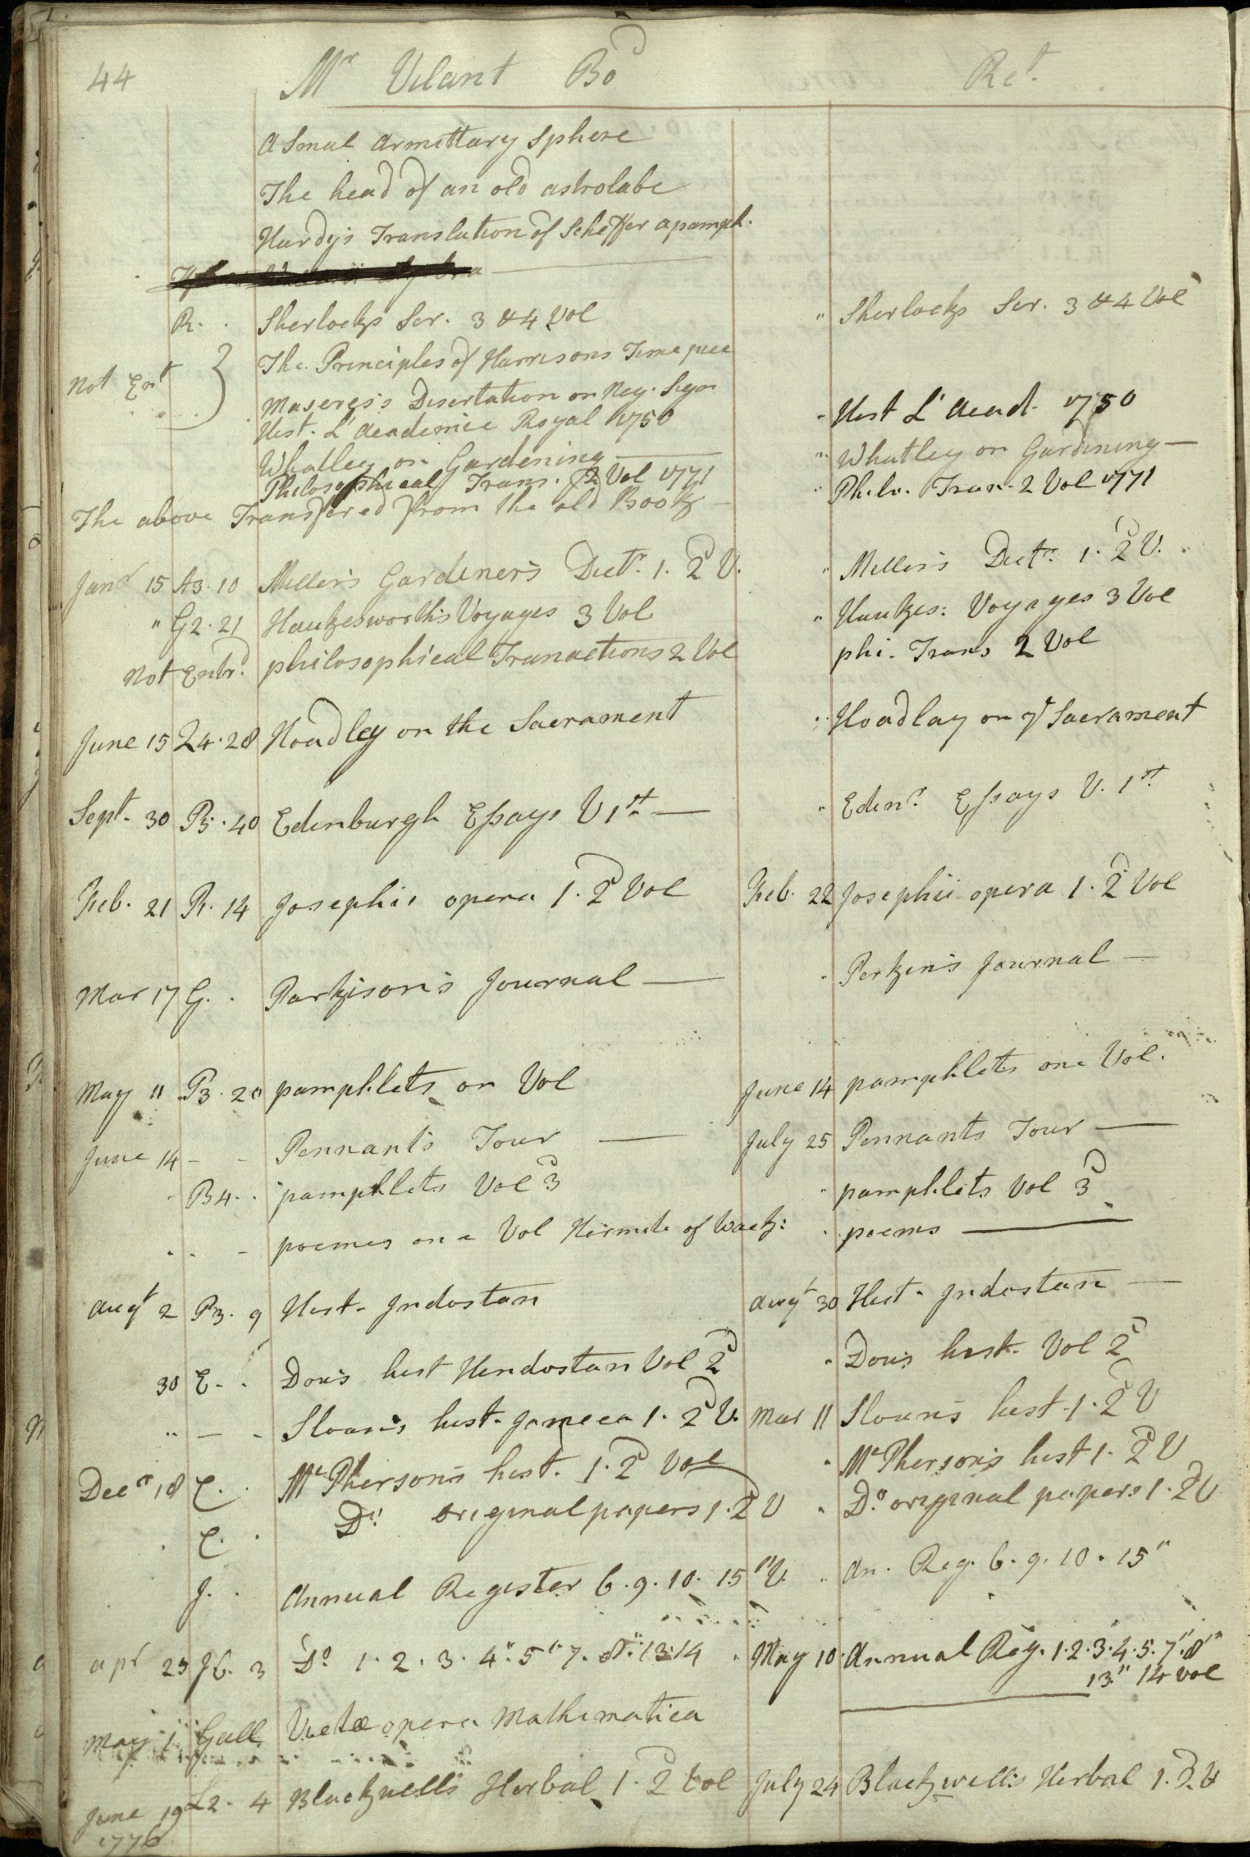 44 Mr Vilant Bod Ret.
A Smal Armillary Sphere
The head of an old astrolabe
Hardy's Translation of Scheffer a pamph.
R. . Sherlocks Ser. 3 & 4 Vol " Sherlocks Ser. 3 & 4 Vol
The Principles of Harrisons Time piece
Not Ent } Maseres's Disertation on Neg. Sign
Hist. L'Academie Royal 1750 " Hist L'Acad. 1750
Whatley on Gardening " Whatley on Gardining
Philosophical Trans. 2 Vol 1771 " Philo. Tran. 2 Vol 1771
The above Transfered from the old Book
Janr 15 A3. 10 Miller's Gardener's Dictr. 1. 2d V. " Miller's Dictr. 1. 2d V.
" G2. 21 Haukesworth's Voyages 3 Vol " Haukes: Voyages 3 Vol
Not Entrd. philosophical Tranactions 2 Vol phi. Trans 2 Vol
June 15 Z4. 28 Hoadley on the Sacrament " Hoadlay on ye Sacrament
Sept. 30 P5. 40 Edinburgh Essays V 1st. — " Edinr. Essays V. 1st
Feb. 21 R. 14 Josephii opera 1. 2d Vol Feb. 22 Josephii opera 1. 2d Vol
Mar 17 G. . Parkison's Journal — " Perkin's Journal —
May 11 P3. 20 pamphlets on Vol June 14 pamphlets one Vol.
June 14 - - Pennant's Tour — July 25 Pennants Tour —
" B4. . pamphlets Vol 3d " pamphlets Vol 3d
" . - poemes one Vol Hermite of Wark: " poems —
Augt 2 P3. 9 Hist. Indostan Augt 30 Hist. Indostan —
30 E. . Dow's hist Hindostan Vol 2d " Dow's hist. Vol 2d
" — - Sloan's hist. Jameca 1. 2d V. Mar 11 Sloan's hist. 1. 2d V
Decr 18 C. . McPherson's hist. 1. 2d Vol " McPherson's hist 1. 2d V
" C. . Do. original papers 1. 2d V " Do original papers 1. 2d V
J. . Annual Register 6. 9. 10. 15" V. " An. Reg. 6. 9. 10. 15"
Apl 25 J6. 3 Do 1. 2. 3. 4". 5" 7. 8". 13. 14 May 10. Annual Reg. 1. 2. 3. 4. 5. 7" 8"
13" 14 vol
May 1 Gall. Vietæ opera Mathimatica
June 19 L2. 4 Blackwell's Herbal 1. 2d Vol July 24 Blackwell's Herbal 1. 2d V
1776